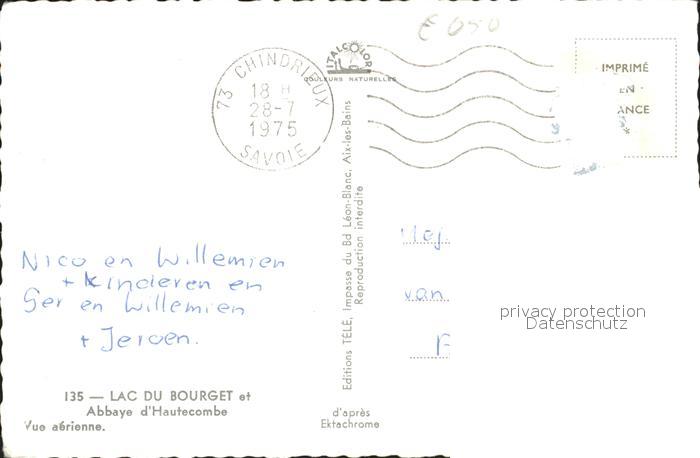 € 0,50
ITALCOLOR
COULEURS NATURELLES
73 CHINDRIEUX
18 H
28-7
1975
SAVOIE
IMPRIMÉ
EN
ANCE
Nico en Willemien
+ kinderen en
Ger en Willemien
+ Jeroen.
Editions TÉLÉ, Impasse du Bd Léon-Blanc, Aix-les-Bains
Reproduction interdite
Mej.
van
F
privacy protection
Datenschutz
135 — LAC DU BOURGET et
Abbaye d'Hautecombe
Vue aérienne.
d'après
Ektachrome